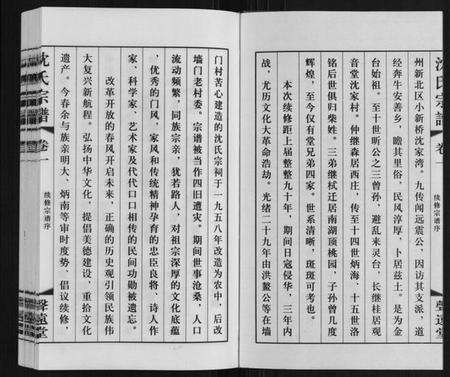 沈氏宗譜
卷一
续修宗谱序
聲遠堂
州新北区小新桥沈家湾。九传闻远震公，因访其支派，道
经奔牛安善乡，瞻其里俗，民风淳厚，卜居兹土。是为金
台始祖。至十世昕公之三曾孙，避乱来灵台，长继桂居观
音堂沈家村。仲继森居西庄，传至十四世炳海，十五世洛
铭后世俱归柴姓。三弟继栻迁居南湖顶桃园，子孙曾几度
辉煌，至今仅有堂兄弟四家。世系清晰，斑斑可考也。
本次续修距上届整整九十年，期间日寇侵华，三年内
战，尤历文化大革命浩劫。光绪二十九年由洪鳌公等在墙
门村苦心建造的沈氏宗祠于一九五八年改造为农中，后改
墙门老村委。宗谱被当作四旧遭灾。期间世事沧桑，人口
流动频繁，同族宗亲，犹若路人，对祖宗深厚的文化底蕴
、优秀的门风、家风和传统精神孕育的忠臣良将、诗人作
家、科学家、艺术家及代代口口相传的民间功勋被遗忘。
改革开放的春风开启未来，正确的历史观引领民族伟
大复兴新航程。弘扬中华文化，提倡美德建设，重拾文化
遗产。今春余与族亲明大、炳南等审时度势，倡议续修，
沈氏宗譜
卷一
续修宗谱序
聲遠堂